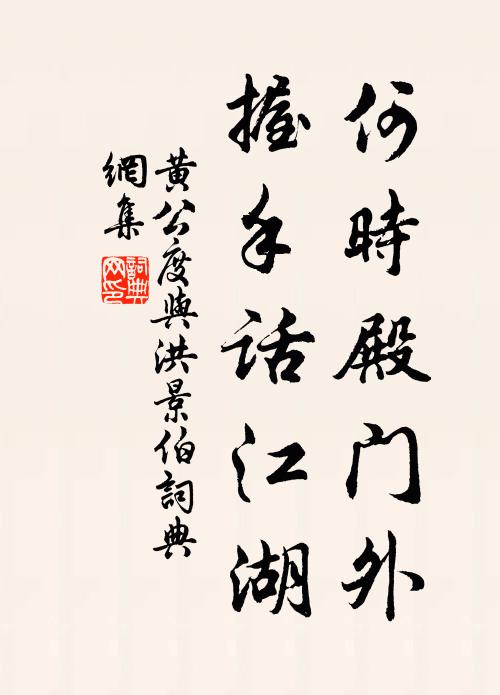 何時殿门外
握手話江湖
黄公度與洪景伯詞典
網集
詞典网印